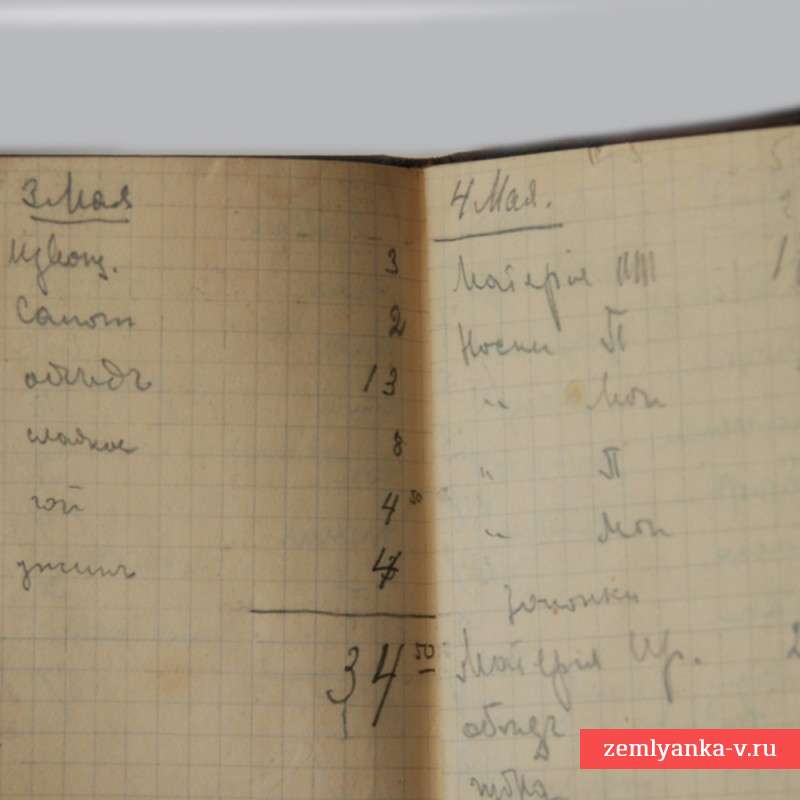 3 Мая
Извощ. 3
Сапож 2
обѣдъ 13
сладкое 8
чай 4 50
ужинъ 4
34 50
4 Мая.
Матерія
Носки П
" Мои
" П
" Мои
Матерія
обѣдъ
zemlyanka-v.ru